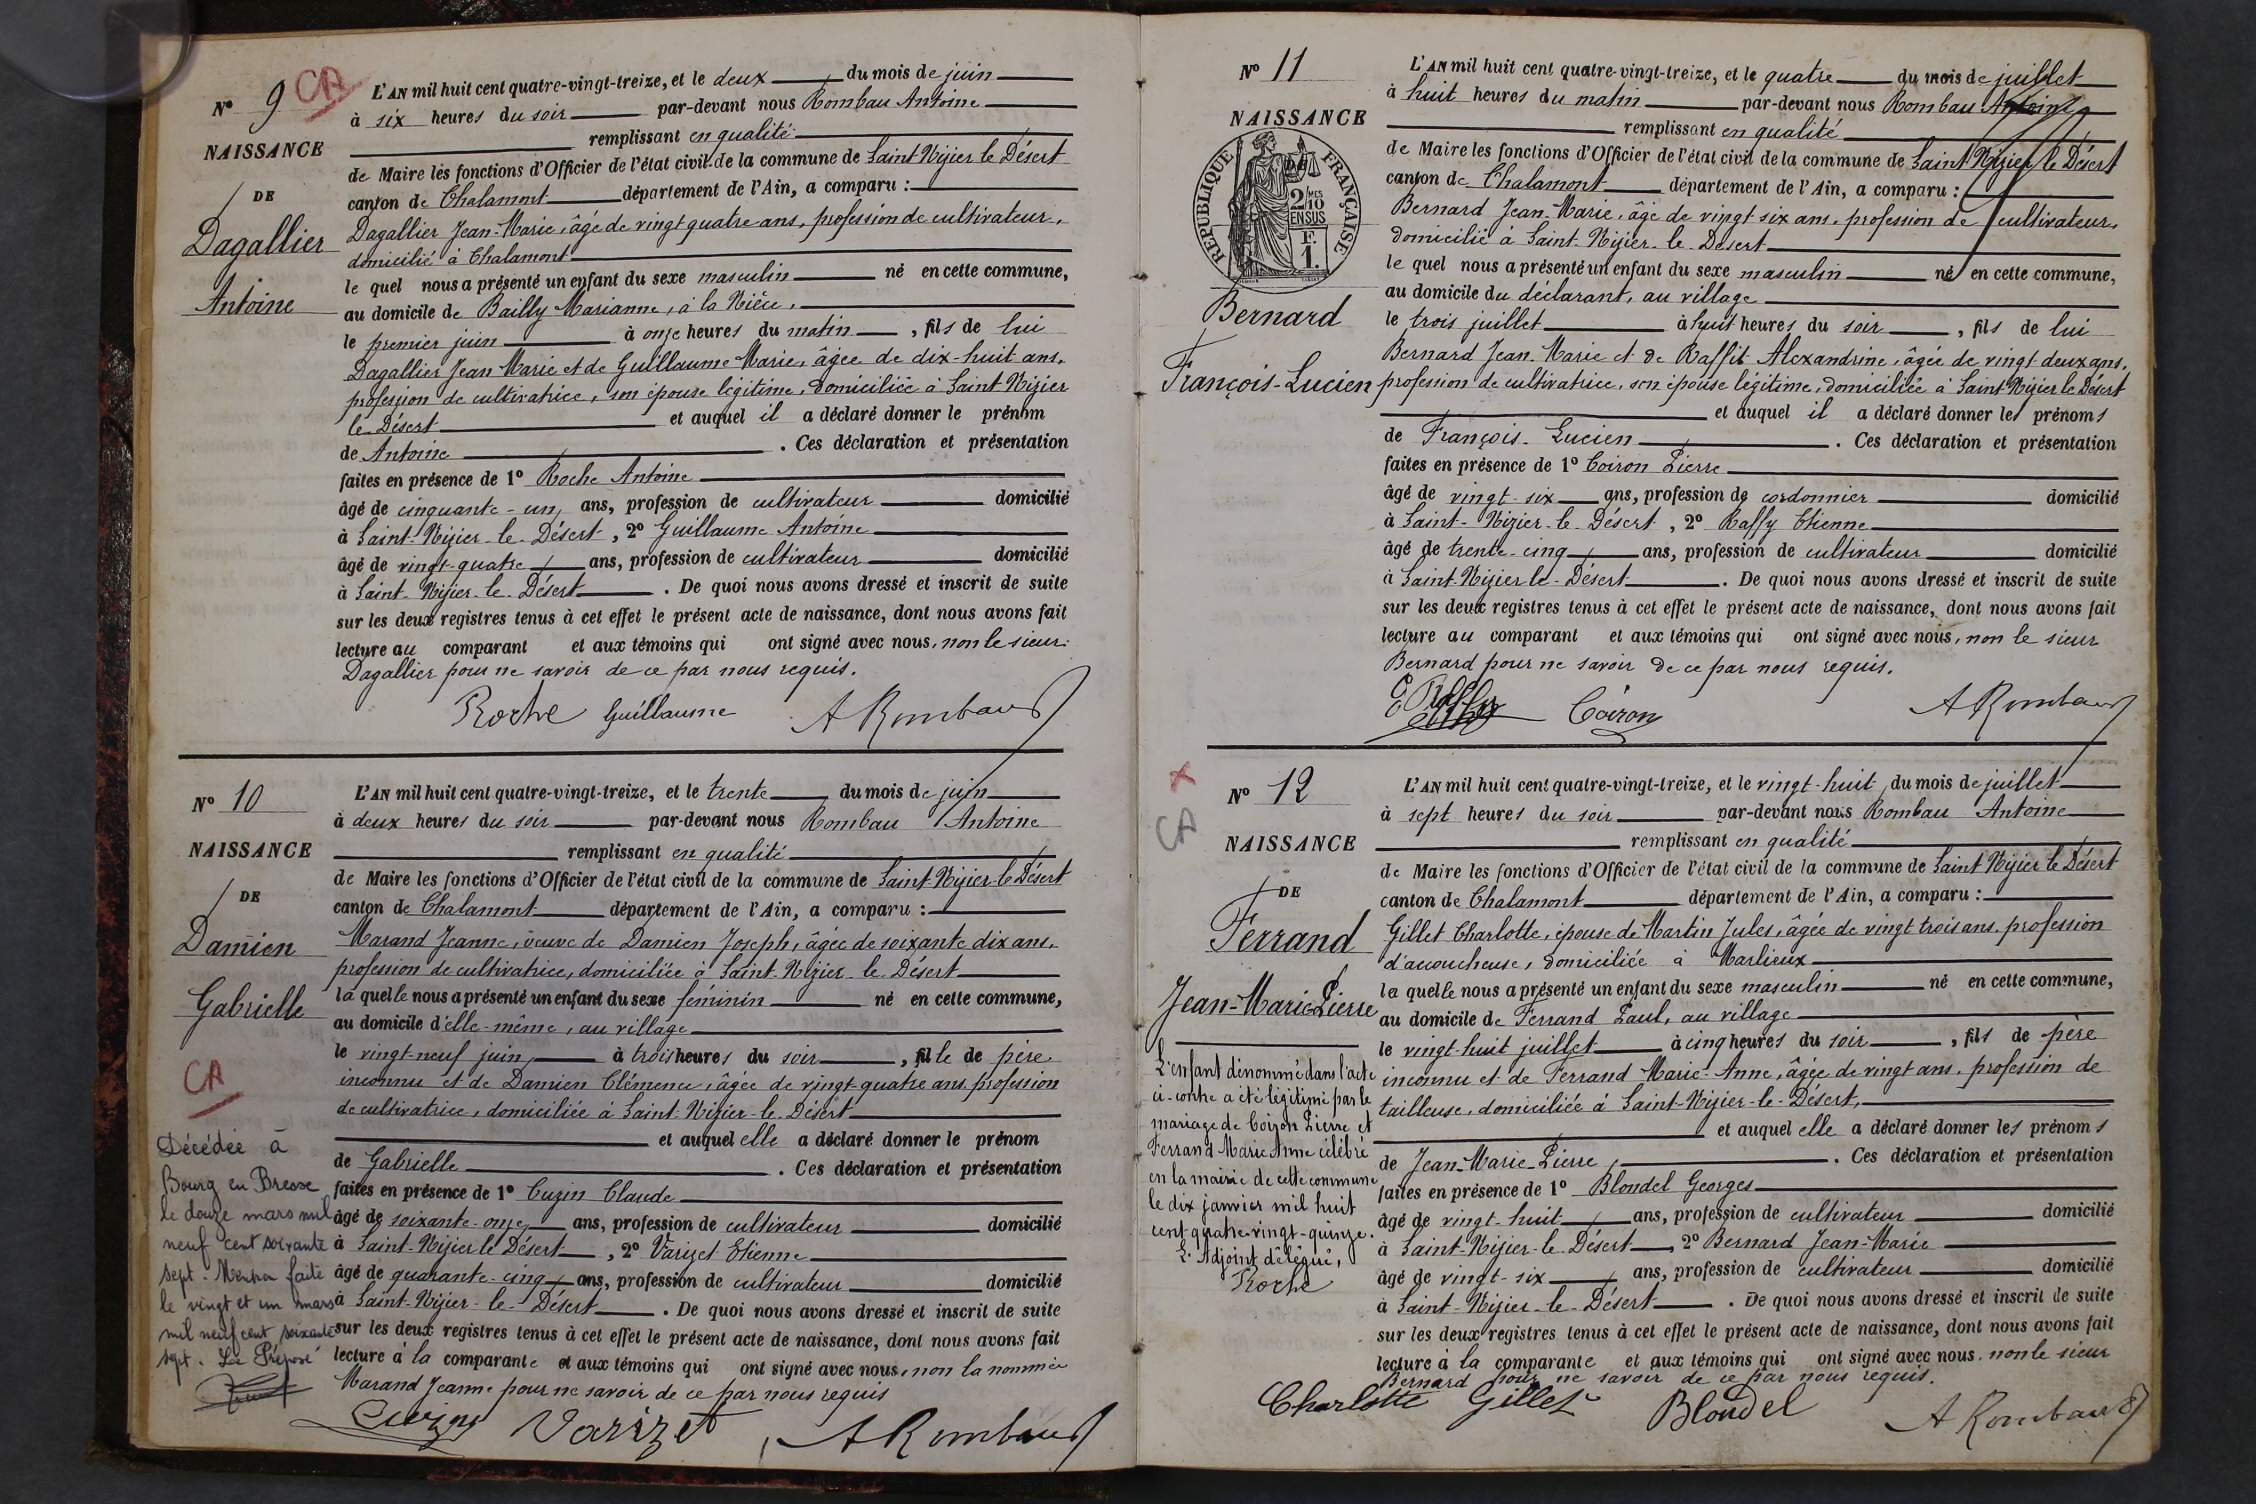 Nº 9 CA
NAISSANCE
DE
Dagallier
Antoine
L'AN mil huit cent quatre-vingt-treize, et le deux du mois de juin
à six heures du soir par-devant nous Rombau Antoine
remplissant en qualité
de Maire les fonctions d'Officier de l'état civil de la commune de Saint Nizier le Désert
canton de Chalamont département de l'Ain, a comparu :
Dagallier Jean-Marie, âgé de vingt quatre ans, profession de cultivateur,
domicilié à Chalamont
le quel nous a présenté un enfant du sexe masculin né en cette commune,
au domicile de Bailly Marianne, à la Nièce,
le premier juin à onze heures du matin, fils de lui
Dagallier Jean Marie et de Guillaume Marie, âgée de dix-huit ans,
profession de cultivatrice, son épouse légitime, domiciliée à Saint Nizier
le Désert et auquel il a déclaré donner le prénom
de Antoine. Ces déclaration et présentation
faites en présence de 1º Roche Antoine
âgé de cinquante-un ans, profession de cultivateur domicilié
à Saint-Nizier-le-Désert, 2º Guillaume Antoine
âgé de vingt-quatre ans, profession de cultivateur domicilié
à Saint-Nizier-le-Désert. De quoi nous avons dressé et inscrit de suite
sur les deux registres tenus à cet effet le présent acte de naissance, dont nous avons fait
lecture au comparant et aux témoins qui ont signé avec nous, non le sieur
Dagallier pour ne savoir de ce par nous requis.
Roche Guillaume A Rombau
Nº 10
NAISSANCE
DE
Damien
Gabrielle
CA
Décédée à
Bourg en Bresse
le douze mars mil
neuf cent soixante
sept. Mention faite
le vingt et un mars
mil neuf cent soixante
sept. Le Préposé
L'AN mil huit cent quatre-vingt-treize, et le trente du mois de juin
à deux heures du soir par-devant nous Rombau Antoine
remplissant en qualité
de Maire les fonctions d'Officier de l'état civil de la commune de Saint-Nizier-le Désert
canton de Chalamont département de l'Ain, a comparu :
Marand Jeanne, veuve de Damien Joseph, âgée de soixante dix ans,
profession de cultivatrice, domiciliée à Saint-Nizier-le-Désert
la quelle nous a présenté un enfant du sexe féminin né en cette commune,
au domicile d'elle-même, au village
le vingt-neuf juin à trois heures du soir, fille de père
inconnu et de Damien Clémence, âgée de vingt quatre ans, profession
de cultivatrice, domiciliée à Saint-Nizier-le-Désert
et auquel elle a déclaré donner le prénom
de Gabrielle. Ces déclaration et présentation
faites en présence de 1º Cuzin Claude
âgé de soixante-onze ans, profession de cultivateur domicilié
à Saint-Nizier le Désert, 2º Varizet Etienne
âgé de quarante-cinq ans, profession de cultivateur domicilié
à Saint-Nizier-le-Désert. De quoi nous avons dressé et inscrit de suite
sur les deux registres tenus à cet effet le présent acte de naissance, dont nous avons fait
lecture à la comparante et aux témoins qui ont signé avec nous, non la nommée
Marand Jeanne pour ne savoir de ce par nous requis
Cuzin Varizet A Rombau
Nº 11
NAISSANCE
RÉPUBLIQUE FRANÇAISE
2/10 MES
EN SUS
F.
1.
Bernard
François-Lucien
L'AN mil huit cent quatre-vingt-treize, et le quatre du mois de juillet
à huit heures du matin par-devant nous Rombau Antoine
remplissant en qualité
de Maire les fonctions d'Officier de l'état civil de la commune de Saint Nizier le Désert
canton de Chalamont département de l'Ain, a comparu :
Bernard Jean-Marie, âgé de vingt six ans, profession de cultivateur,
domicilié à Saint-Nizier-le-Désert
le quel nous a présenté un enfant du sexe masculin né en cette commune,
au domicile du déclarant, au village
le trois juillet à huit heures du soir, fils de lui
Bernard Jean-Marie et de Raffit Alexandrine, âgée de vingt deux ans,
profession de cultivatrice, son épouse légitime, domiciliée à Saint Nizier le Désert
et auquel il a déclaré donner les prénoms
de François-Lucien. Ces déclaration et présentation
faites en présence de 1º Coiron Pierre
âgé de vingt-six ans, profession de cordonnier domicilié
à Saint-Nizier-le-Désert, 2º Raffy Etienne
âgé de trente-cinq ans, profession de cultivateur domicilié
à Saint-Nizier le-Désert. De quoi nous avons dressé et inscrit de suite
sur les deux registres tenus à cet effet le présent acte de naissance, dont nous avons fait
lecture au comparant et aux témoins qui ont signé avec nous, non le sieur
Bernard pour ne savoir de ce par nous requis.
E Raffy Coiron A Rombau
Nº 12
CA
NAISSANCE
DE
Ferrand
Jean-Marie-Pierre
L'enfant dénommé dans l'acte
ci-contre a été légitimé par le
mariage de Coiron Pierre et
Ferrand Marie Anne célébré
en la mairie de cette commune
le dix janvier mil huit
cent quatre-vingt-quinze.
L'Adjoint délégué,
Roche
L'AN mil huit cent quatre-vingt-treize, et le vingt-huit du mois de juillet
à sept heures du soir par-devant nous Rombau Antoine
remplissant en qualité
de Maire les fonctions d'Officier de l'état civil de la commune de Saint Nizier le Désert
canton de Chalamont département de l'Ain, a comparu :
Gillet Charlotte, épouse de Martin Jules, âgée de vingt trois ans, profession
d'accoucheuse, domiciliée à Marlieux
la quelle nous a présenté un enfant du sexe masculin né en cette commune,
au domicile de Ferrand Paul, au village
le vingt-huit juillet à cinq heures du soir, fils de père
inconnu et de Ferrand Marie-Anne, âgée de vingt ans, profession de
tailleuse, domiciliée à Saint-Nizier-le-Désert,
et auquel elle a déclaré donner les prénoms
de Jean-Marie-Pierre. Ces déclaration et présentation
faites en présence de 1º Blondel Georges
âgé de vingt-huit ans, profession de cultivateur domicilié
à Saint-Nizier-le-Désert, 2º Bernard Jean-Marie
âgé de vingt-six ans, profession de cultivateur domicilié
à Saint-Nizier-le-Désert. De quoi nous avons dressé et inscrit de suite
sur les deux registres tenus à cet effet le présent acte de naissance, dont nous avons fait
lecture à la comparante et aux témoins qui ont signé avec nous, non le sieur
Bernard pour ne savoir de ce par nous requis.
Charlotte Gillet Blondel A Rombau